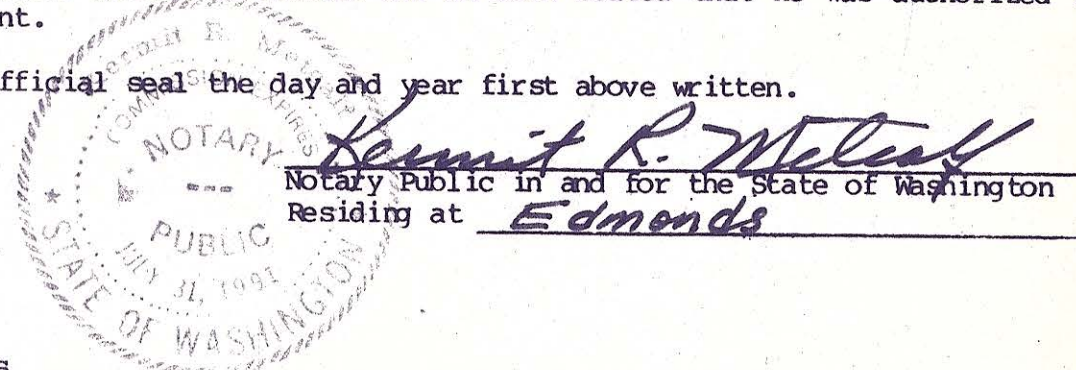 nt.
fficial seal the day and year first above written.
Kermit R. Metcalf
Notary Public in and for the State of Washington
Residing at Edmonds
Kermit R. Metcalf
COMMISSION EXPIRES
NOTARY
---
PUBLIC
JULY 31, 1991
★ STATE OF WASHINGTON